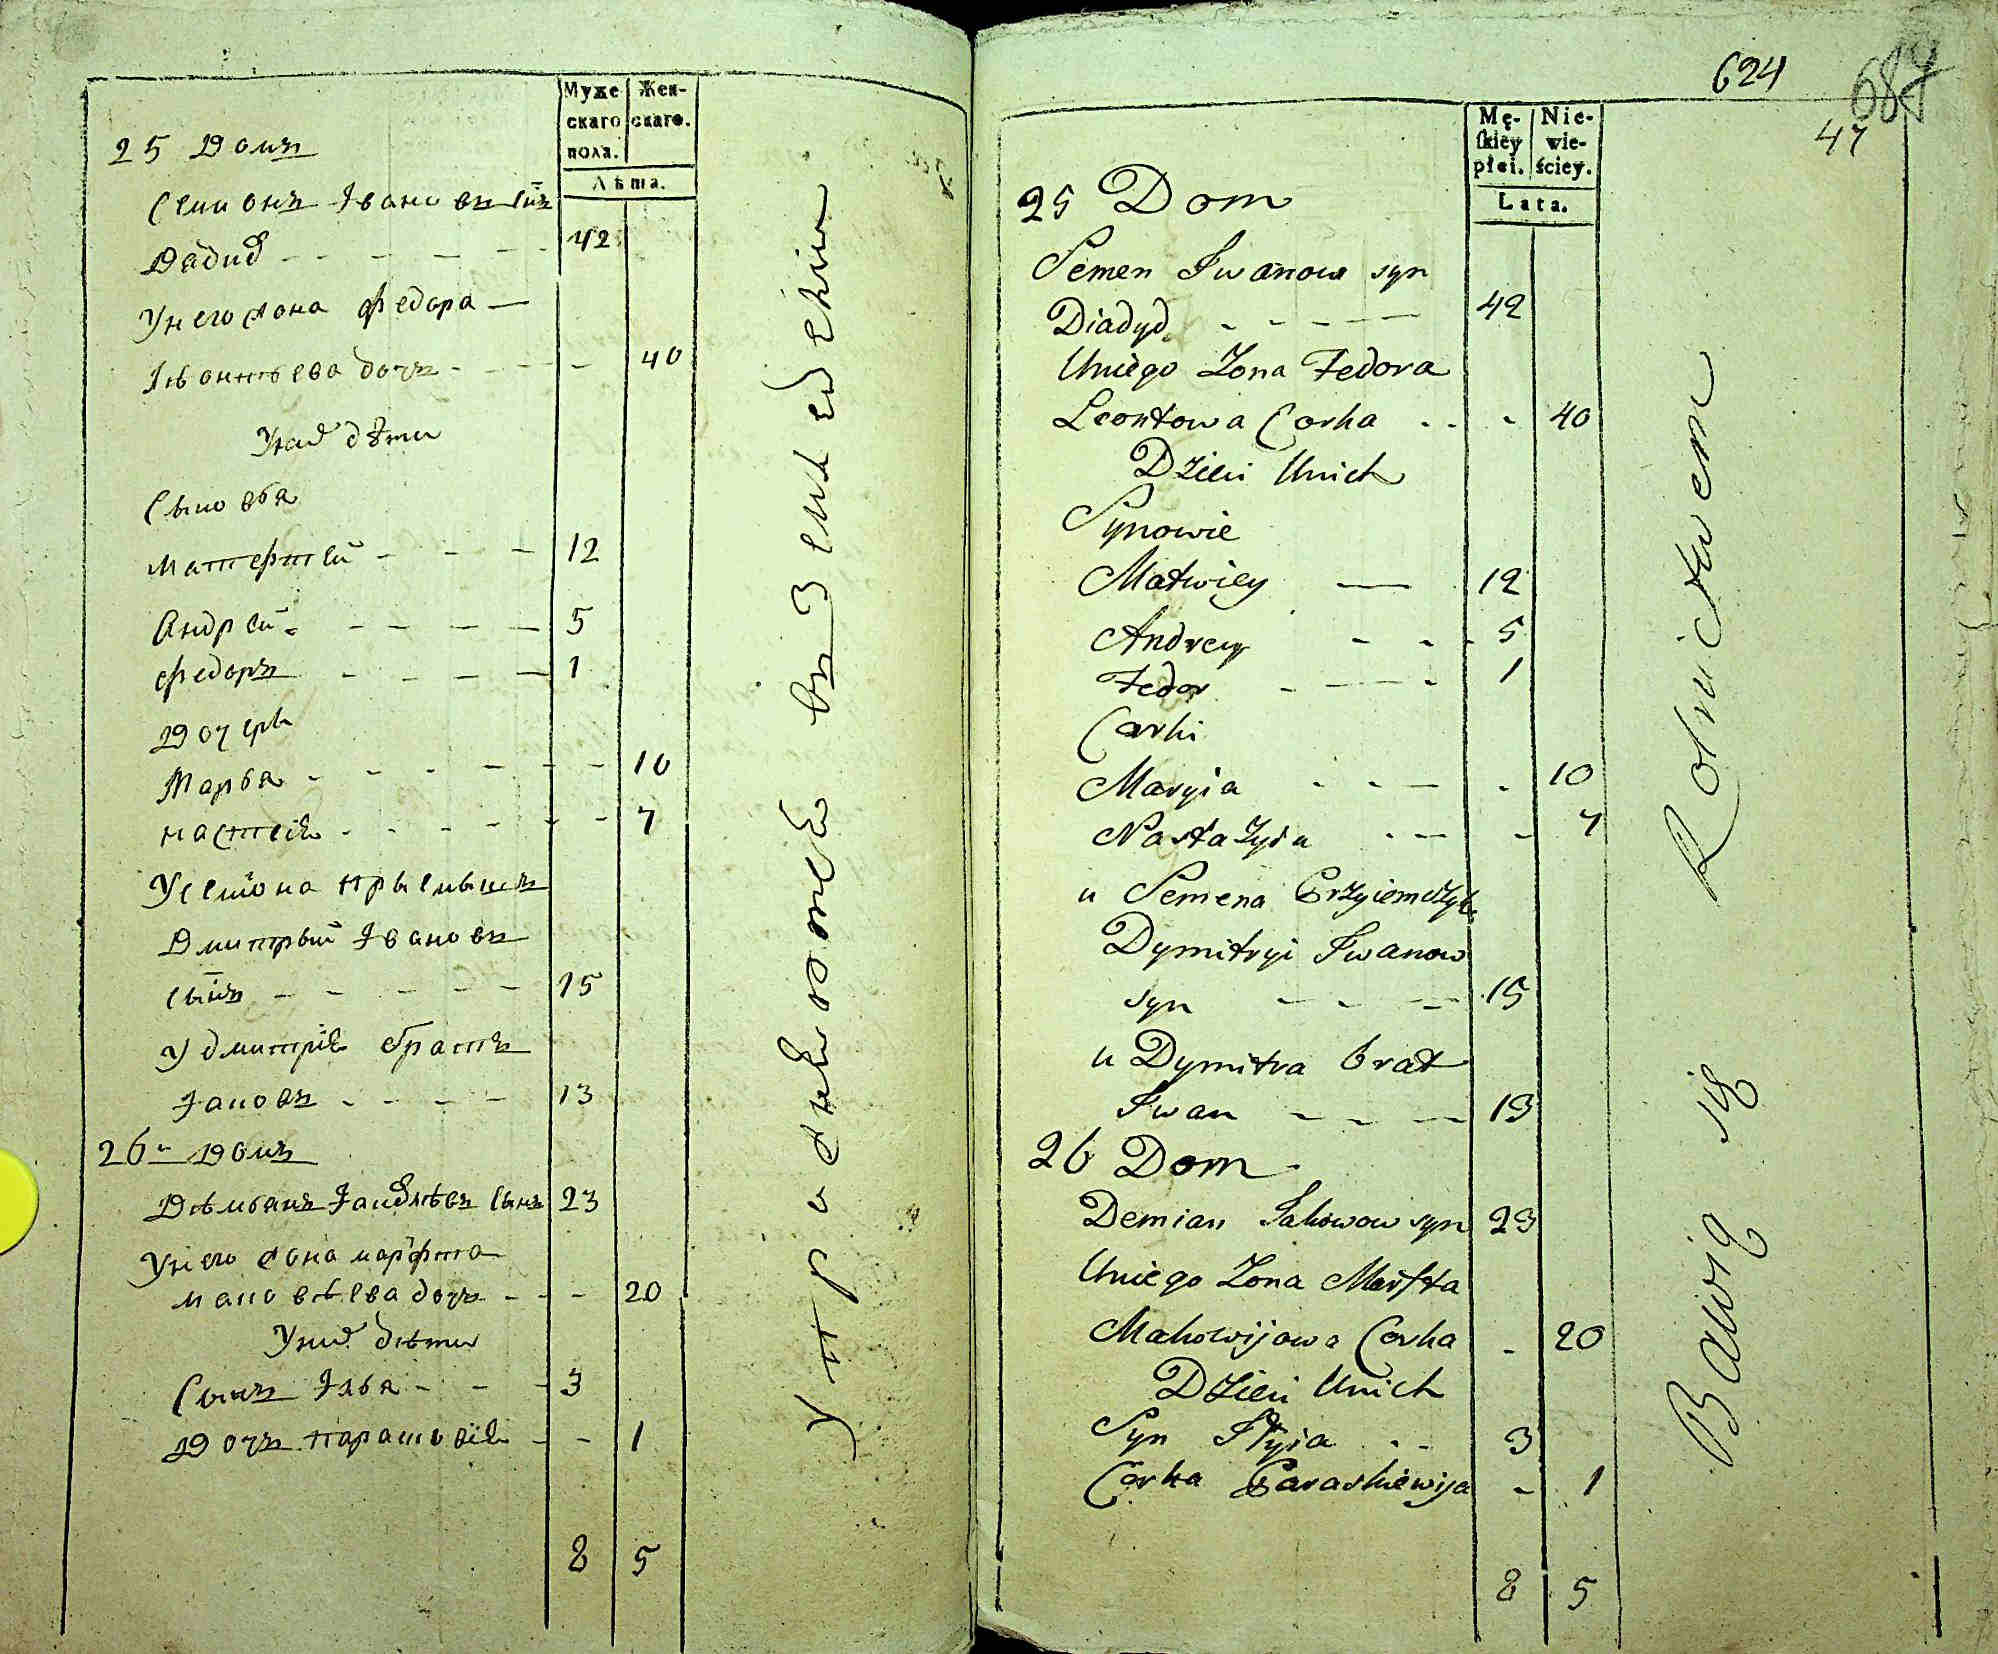 Муже
скаго
пола.
Жен-
скаго.
Лѣта.
25 Домъ
Семионъ Івановъ сынъ
Дядид 42
У него жона федора
Лѣонтьева дочъ 40
У них дѣти
Сыновя
матфтей 12
Андрей 5
федоръ 1
Дочери
Маръя 10
настсія 7
У семиона прыемышъ
Дмитрый Івановъ
сынъ 15
У дмитрія братъ
Іановъ 13
26 Домъ
Дѣмьянъ сынъ 23
У него жона марфта
маковѣева дочъ 20
У них дѣти
Сынъ Ілья 3
Дочъ парасковія 1
8 5
Упражняются въ Земледении
624
687
47
Mę-
skiey
płci.
Nie-
wie-
ściey.
Lata.
25 Dom
Semen Iwanow syn
Diadyd 42
Uniego Zona Fedora
Leontowa Corka 40
Dzieci Unich
Synowie
Matwiey 12
Andrey 5
Fedor 1
Corki
Maryia 10
Nastazyia 7
u Semena Przyiemczyk
Dymitryi Iwanow
syn 15
u Dymitra brat
Iwan 13
26 Dom
Demian Jakowow syn 23
Uniego Zona Marfta
Makowijowa Corka 20
Dzieci Unich
Syn Ilyia 3
Corka Paraskiewija 1
8 5
Bawią się Rolnictwem